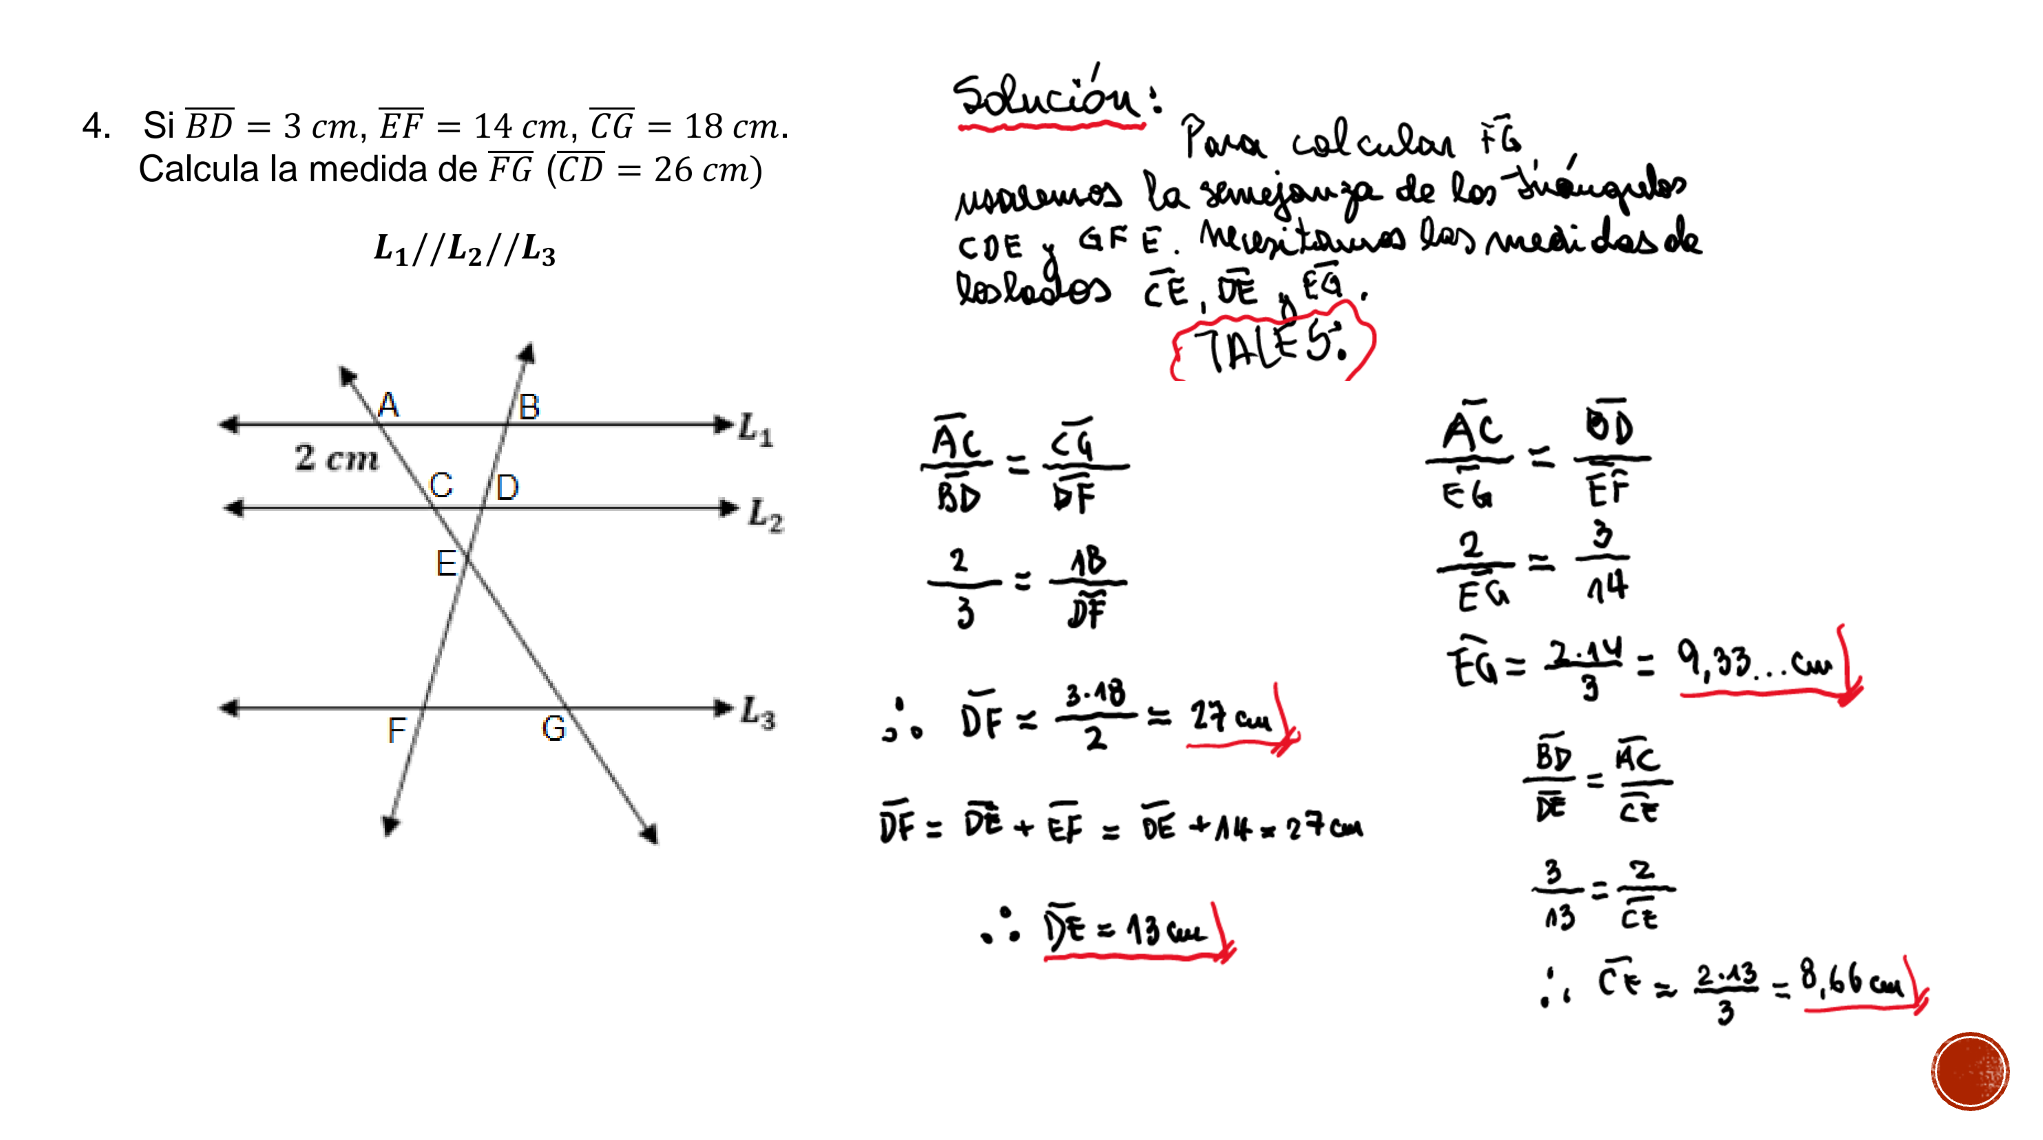 4. Si BD = 3 cm, EF = 14 cm, CG = 18 cm.
Calcula la medida de FG (CD = 26 cm)
L₁//L₂//L₃
A
B
L₁
2 cm
C
D
L₂
E
L₃
F
G
Solución:
Para calcular FG,
usaremos la semejanza de los triángulos
CDE y GFE. Necesitamos las medidas de
los lados CE, DE y EG.
TALES:
AC/BD = CG/DF
2/3 = 18/DF
∴ DF = 3·18/2 = 27 cm
DF = DE + EF = DE + 14 = 27 cm
∴ DE = 13 cm
AC/EG = BD/EF
2/EG = 3/14
EG = 2·14/3 = 9,33... cm
BD/DE = AC/CE
3/13 = 2/CE
∴ CE = 2·13/3 = 8,66 cm